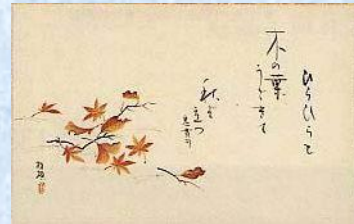 ひらひらと
木の葉
うごきて
秋ぞ
立つ